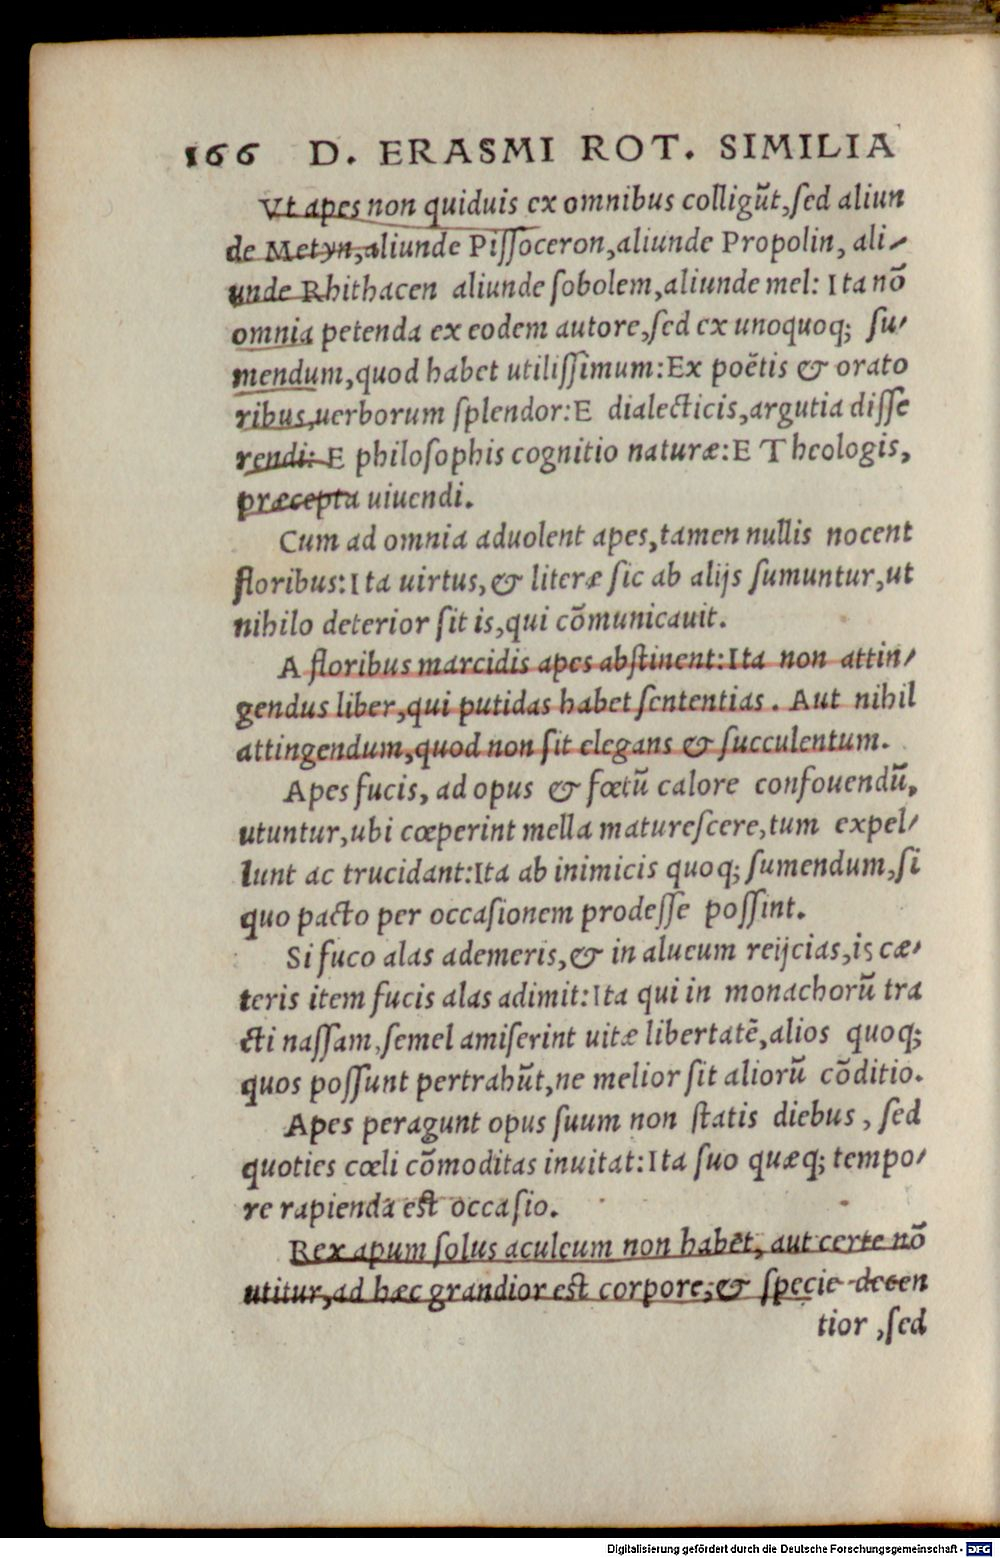 166 D. ERASMI ROT. SIMILIA
Vt apes non quiduis ex omnibus colligūt,ſed aliun
de Metyn,aliunde Piſſoceron,aliunde Propolin, ali-
unde Rhithacen aliunde ſobolem,aliunde mel: Ita nō
omnia petenda ex eodem autore,ſed ex unoquoq; ſu-
mendum,quod habet utiliſſimum:Ex poëtis & orato
ribus,uerborum ſplendor:E dialecticis,argutia diſſe
rendi: E philoſophis cognitio naturæ:E Theologis,
præcepta uiuendi.
Cum ad omnia aduolent apes,tamen nullis nocent
floribus:Ita uirtus,& literæ ſic ab alijs ſumuntur,ut
nihilo deterior ſit is,qui cōmunicauit.
A floribus marcidis apes abſtinent:Ita non attin-
gendus liber,qui putidas habet ſententias. Aut nihil
attingendum,quod non ſit elegans & ſucculentum.
Apes fucis, ad opus & fœtū calore confouendū,
utuntur,ubi cœperint mella matureſcere,tum expel-
lunt ac trucidant:Ita ab inimicis quoq; ſumendum,ſi
quo pacto per occaſionem prodeſſe poſſint.
Si fuco alas ademeris,& in alueum reijcias,is cæ-
teris item fucis alas adimit:Ita qui in monachorū tra
cti naſſam,ſemel amiſerint uitæ libertatē,alios quoq;
quos poſſunt pertrahūt,ne melior ſit aliorū cōditio.
Apes peragunt opus ſuum non ſtatis diebus, ſed
quoties cœli cōmoditas inuitat:Ita ſuo quæq; tempo-
re rapienda eſt occaſio.
Rex apum ſolus aculeum non habēt, aut certe nō
utitur,ad hæc grandior eſt corpore,& ſpecie decen
tior ,ſed
Digitalisierung gefördert durch die Deutsche Forschungsgemeinschaft - DFG